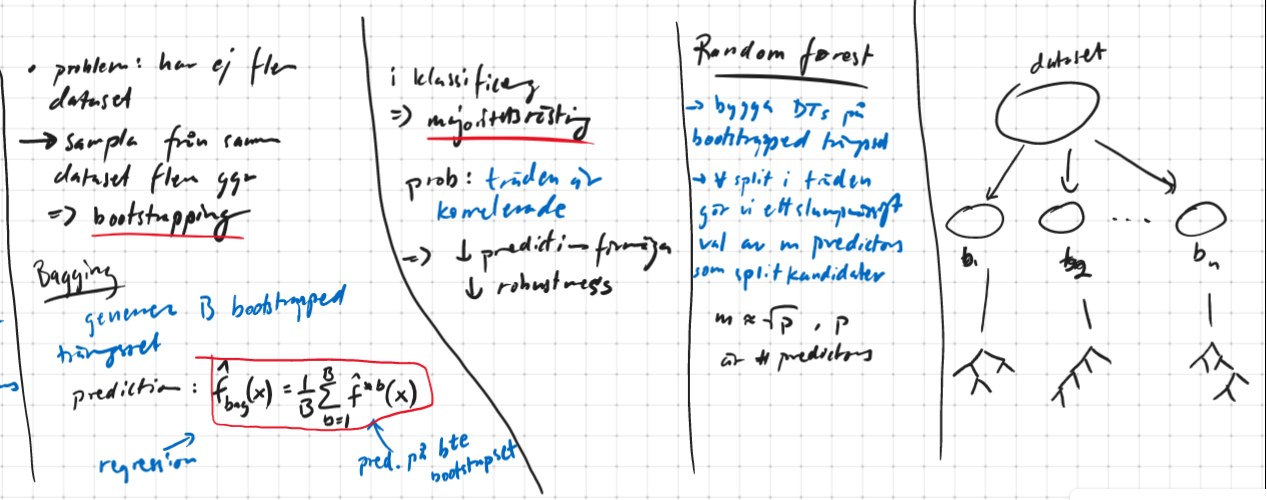 • problem: har ej fler
dataset
→ sampla från samma
dataset fler ggr
=> bootstrapping
Bagging
generera B bootstrapped
träningsset
prediction: f̂_bag(x) = 1/B Σ_{b=1}^{B} f̂^{*b}(x)
regression
pred. på b:te
bootstrapset
i klassificering
=> majoritetsröstning
prob: träden är
korrelerade
=> ↓ prediction-förmåga
↓ robustness
Random forest
→ bygga DTs på
bootstrapped träningsset
→ ∀ split i träden
gör vi ett slumpmässigt
val av m predictors
som splitkandidater
m ≈ √p , p
är # predictors
dataset
...
b₁ b₂ bₙ